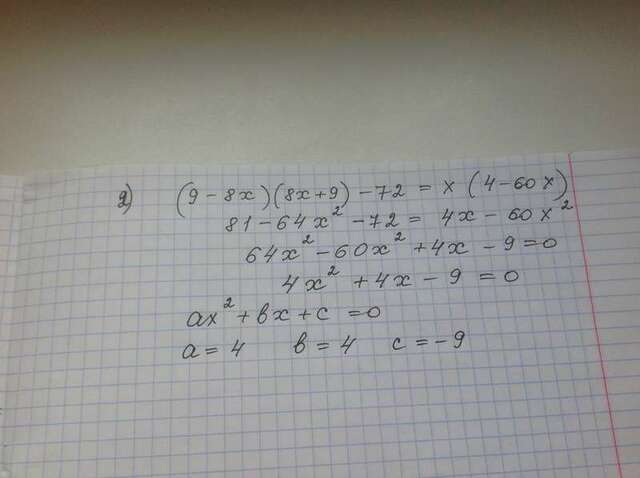 2) (9 - 8x)(8x+9) - 72 = x (4 - 60x)
81 - 64x² - 72 = 4x - 60x²
64x² - 60x² + 4x - 9 = 0
4x² + 4x - 9 = 0
ax² + bx + c = 0
a = 4 b = 4 c = -9